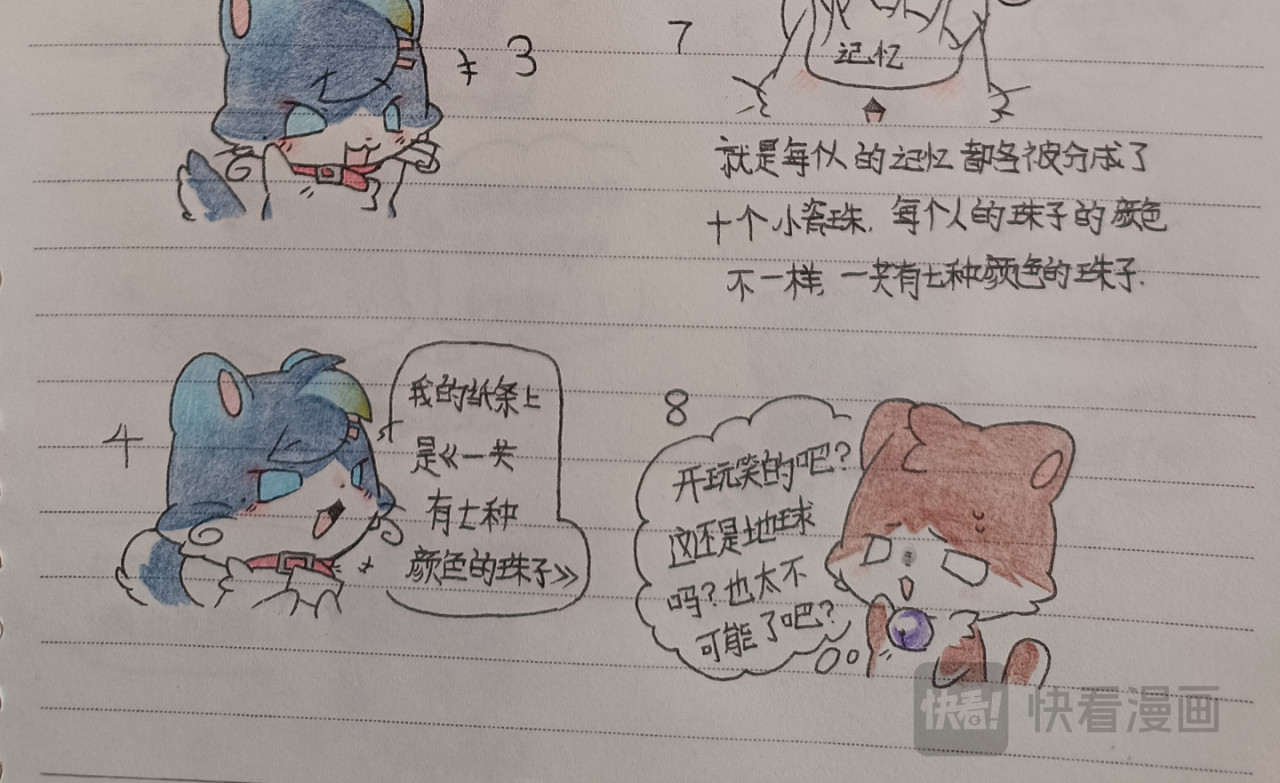 3
4
我的纸条上
是《一共
有七种
颜色的珠子》
7
记忆
就是每个人的记忆都各被分成了
十个小瓷珠,每个人的珠子的颜色
不一样,一共有七种颜色的珠子.
8
开玩笑的吧?
这还是地球
吗?也太不
可能了吧?
快看!
快看漫画